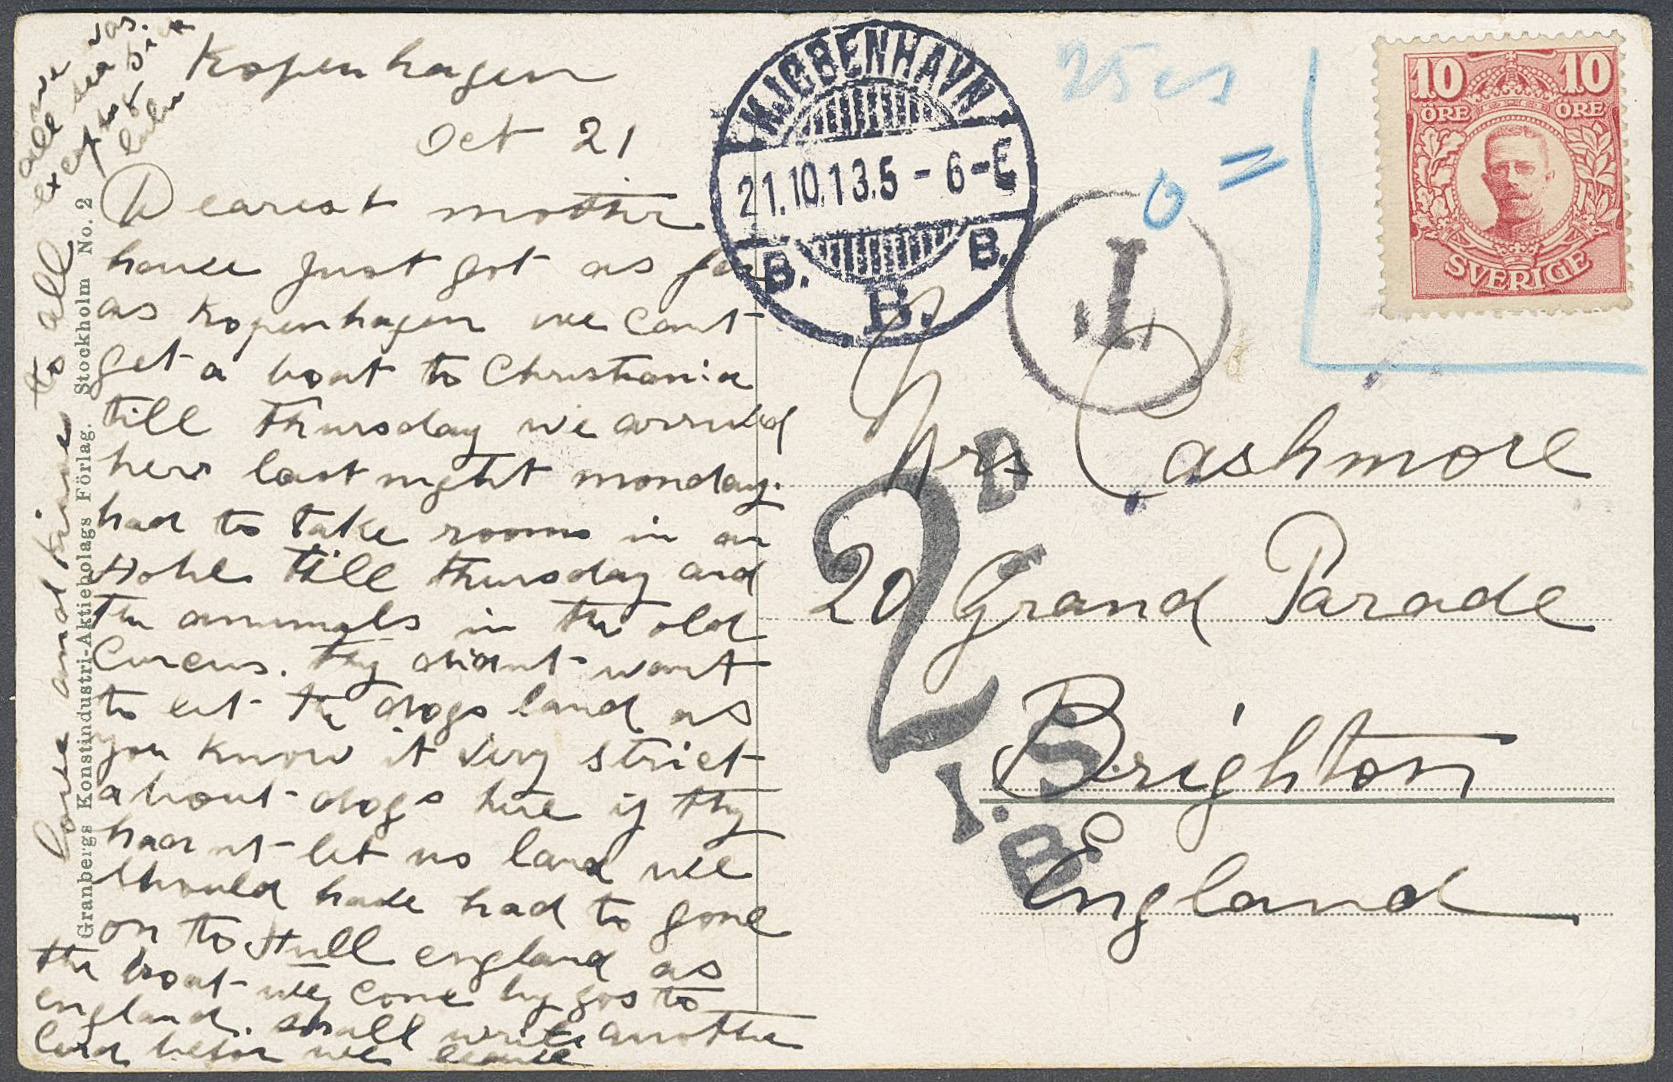 Kopenhagen
Oct 21
Dearest mother
have just got as far
as Kopenhagen we cant
get a boat to Christiania
till Thursday we arrived
here last night monday.
had to take rooms in an
Hotel till thursday and
the animals in the old
Circus. They didnt want
to let the dogs land as
you know it very strict
about dogs here if they
hadnt let us land we
should have had to gone
on to Hull england as
the boat we come by gos to
england. shall write another
card before we leave
love and kisses to all
we
all
sea sick
except
KJØBENHAVN
21.10.13.5-6-E
B. B. B.
25 cs
0 =
T
10 10
ÖRE ÖRE
SVERIGE
2D
I.S.
B.
Mrs Cashmore
20 Grand Parade
Brighton
England
Granbergs Konstindustri-Aktiebolags Förlag. Stockholm No. 2